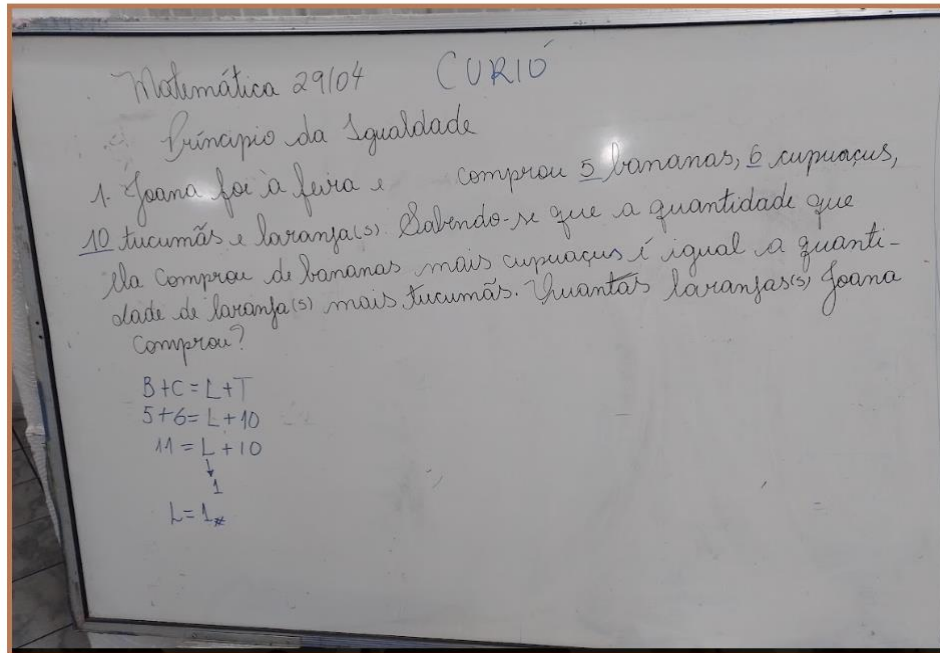 Matemática 29/04 CURIÓ
Príncipio da Igualdade
1. Joana foi à feira e comprou 5 bananas, 6 cupuaçus,
10 tucumãs e laranja(s). Sabendo-se que a quantidade que
ela comprou de bananas mais cupuaçus é igual a quanti-
dade de laranja(s) mais tucumãs. Quantas laranjas(s) Joana
comprou?
B+C=L+T
5+6=L+10
11=L+10
↓
1
L=1#